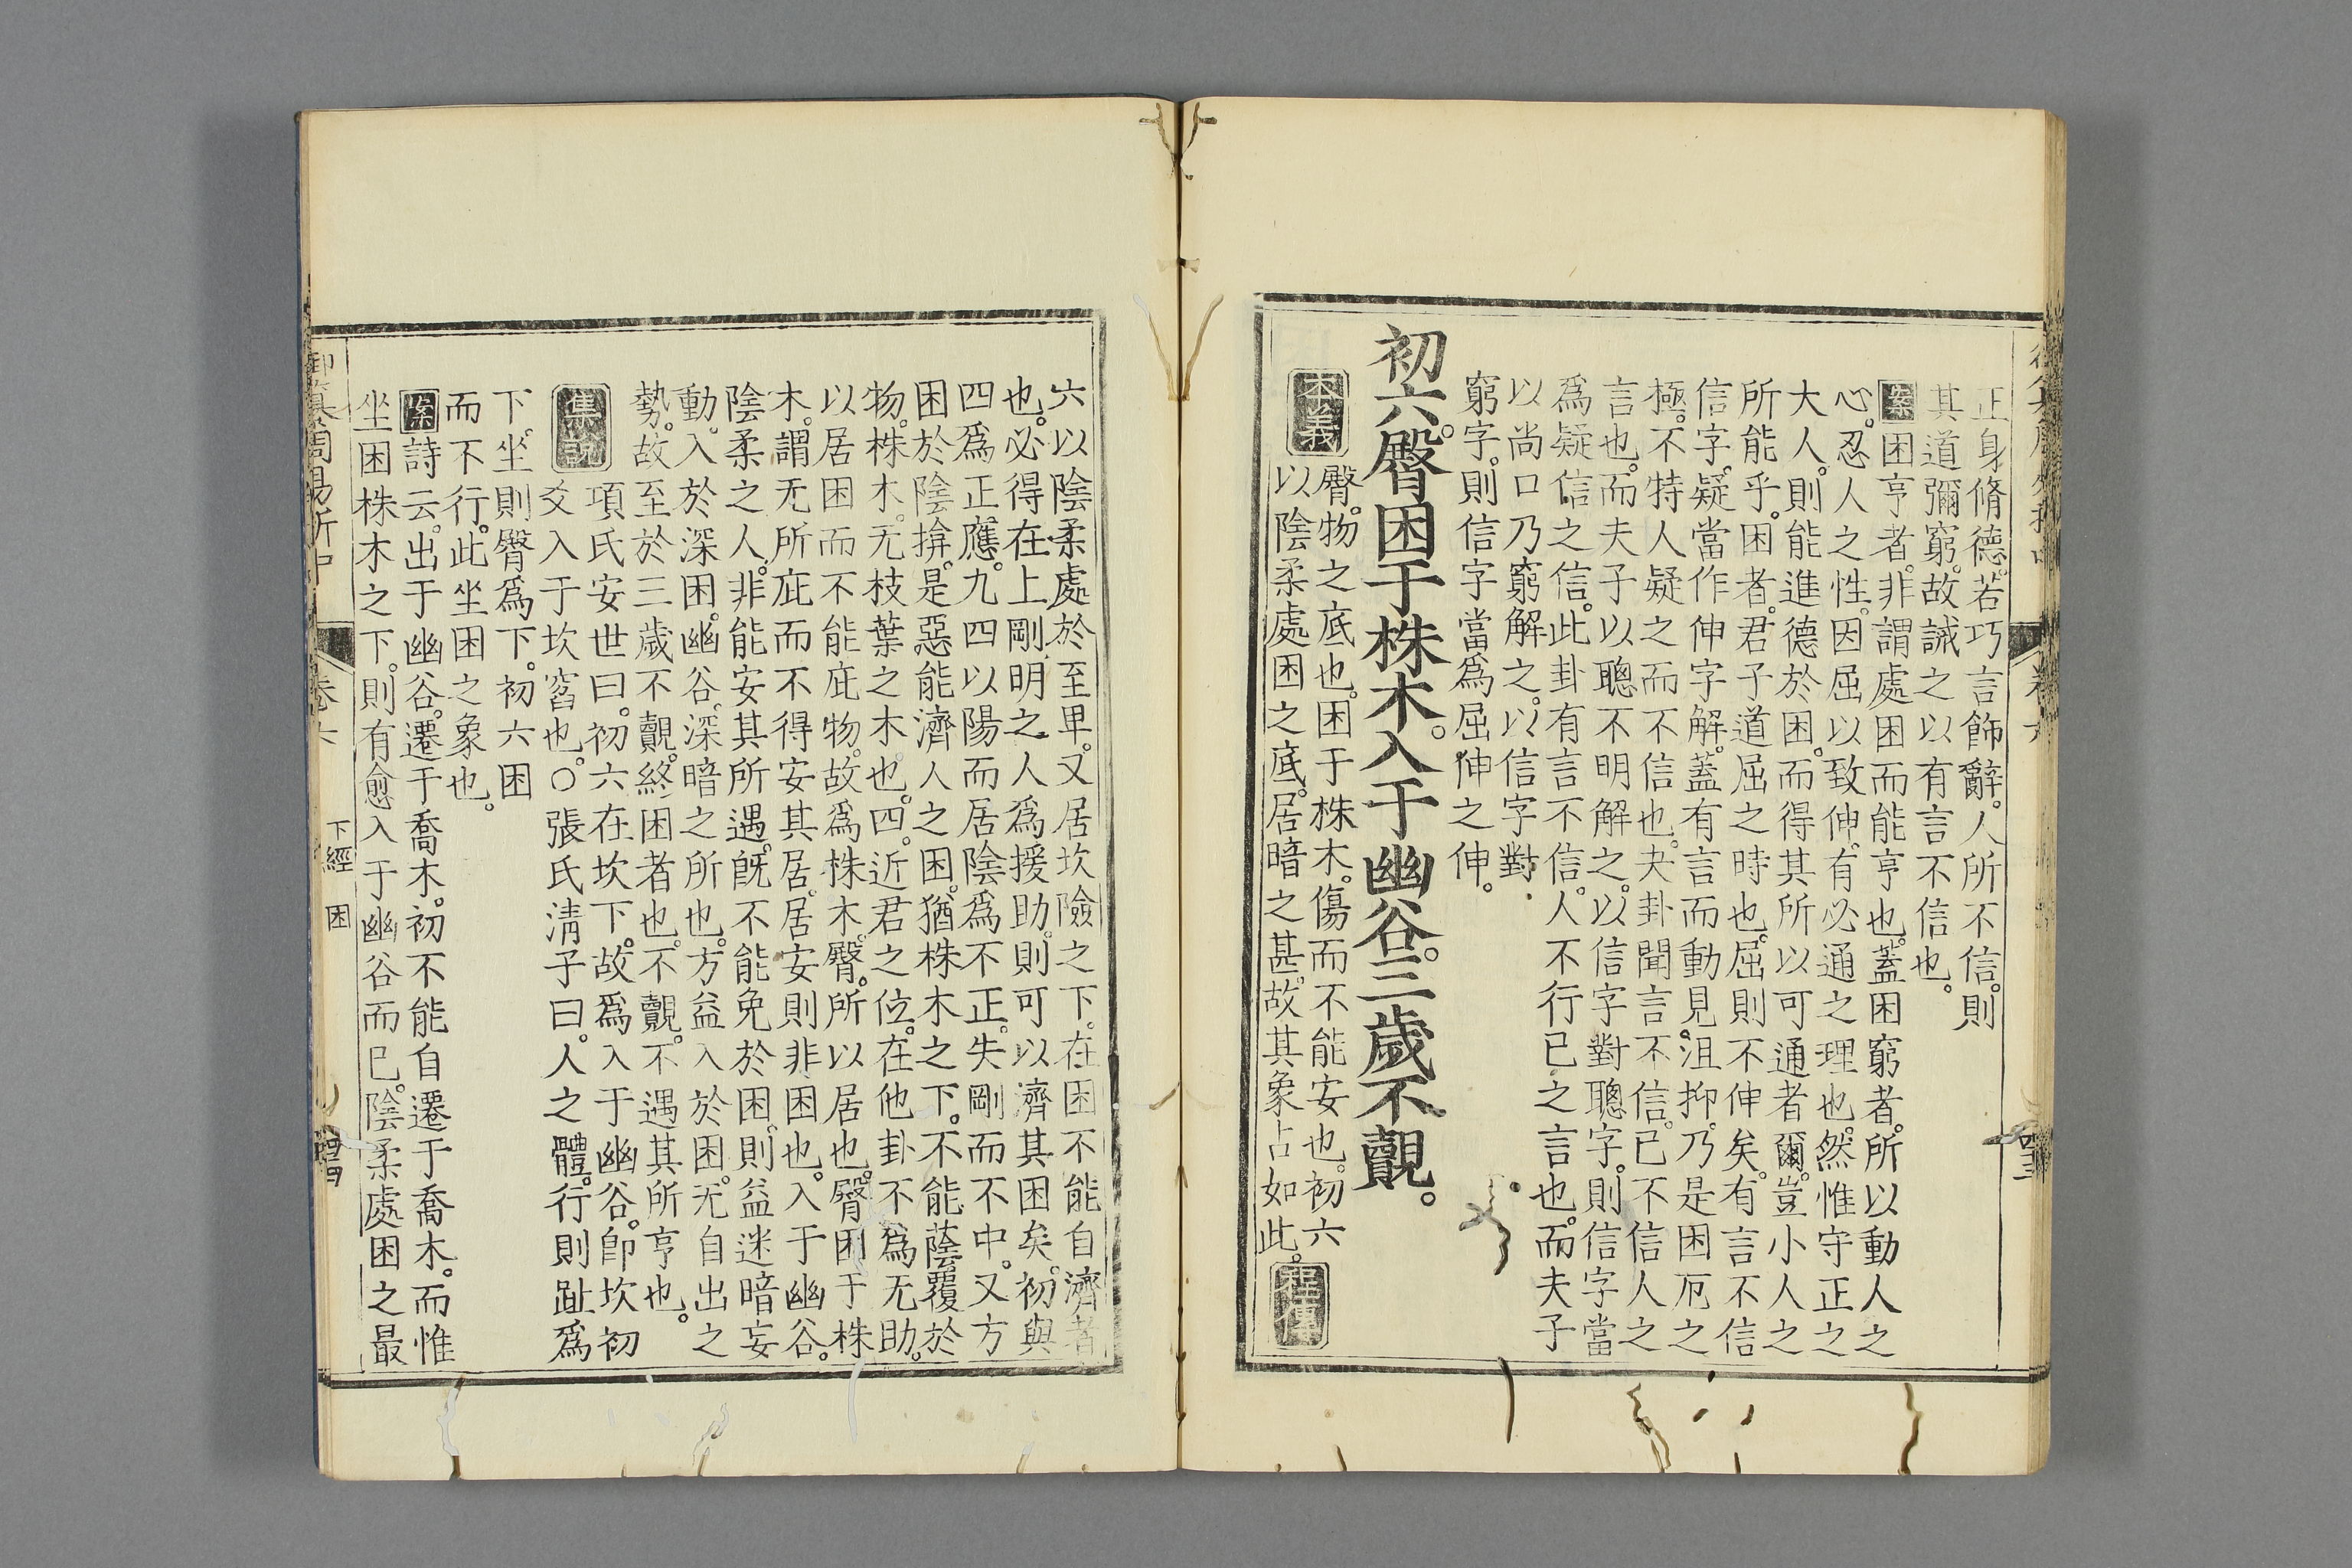 正身脩德。若巧言飾辭。人所不信。則
其道彌窮。故誡之以有言不信也。
案困亨者。非謂處困而能亨也。蓋困窮者。所以動人之
心。忍人之性。因屈以致伸。有必通之理也。然惟守正之
大人。則能進德於困。而得其所以可通者爾。豈小人之
所能乎。困者。君子道屈之時也。屈則不伸矣。有言不信。
信字。疑當作伸字解。蓋有言而動見沮抑。乃是困厄之
極。不特人疑之而不信也。夬卦聞言不信。已不信人之
言也。而夫子以聰不明解之。以信字對聰字。則信字當
爲疑信之信。此卦有言不信。人不行已之言也。而夫子
以尚口乃窮解之。以信字對
窮字。則信字當爲屈伸之伸。
初六。臀困于株木。入于幽谷。三歲不覿。
本義
臀。物之底也。困于株木。傷而不能安也。初六
以陰柔處困之底。居暗之甚。故其象占如此。
程傳
卷六
六以陰柔處於至卑。又居坎險之下。在困不能自濟者
也。必得在上剛明之人爲援助。則可以濟其困矣。初與
四爲正應。九四以陽而居陰爲不正。失剛而不中。又方
困於陰揜。是惡能濟人之困。猶株木之下。不能蔭覆於
物。株木。无枝葉之木也。四。近君之位。在他卦不爲无助。
以居困而不能庇物。故爲株木。臀。所以居也。臀困于株
木。謂无所庇而不得安其居。居安則非困也。入于幽谷。
陰柔之人。非能安其所遇。旣不能免於困。則益迷暗妄
動。入於深困。幽谷。深暗之所也。方益入於困。无自出之
勢。故至於三歲不覿。終困者也。不覿。不遇其所亨也。
集說
項氏安世曰。初六在坎下。故爲入于幽谷。卽坎初
爻入于坎窞也。○張氏淸子曰。人之體。行則趾爲
下。坐則臀爲下。初六困
而不行。此坐困之象也。
案詩云。出于幽谷。遷于喬木。初不能自遷于喬木。而惟
坐困株木之下。則有愈入于幽谷而已。陰柔處困之最
御纂周易折中
卷六
下經
困